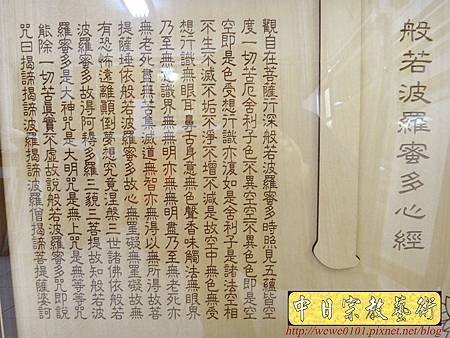 般若波羅蜜多心經
觀自在菩薩行深般若波羅蜜多時照見五蘊皆空
度一切苦厄舍利子色不異空空不異色色即是空
空即是色受想行識亦復如是舍利子是諸法空相
不生不滅不垢不淨不增不減是故空中無色無受
想行識無眼耳鼻舌身意無色聲香味觸法無眼界
乃至無意識界無無明亦無無明盡乃至無老死亦
無老死盡無苦集滅道無智亦無得以無所得故菩
提薩埵依般若波羅蜜多故心無罣礙無罣礙故無
有恐怖遠離顛倒夢想究竟涅槃三世諸佛依般若
波羅蜜多故得阿耨多羅三藐三菩提故知般若波
羅蜜多是大神咒是大明咒是無上咒是無等等咒
能除一切苦真實不虛故說般若波羅蜜多咒即說
咒曰揭諦揭諦波羅揭諦波羅僧揭諦菩提薩婆訶
中日宗教藝術
http://wewe0101.pixnet.net/blog/